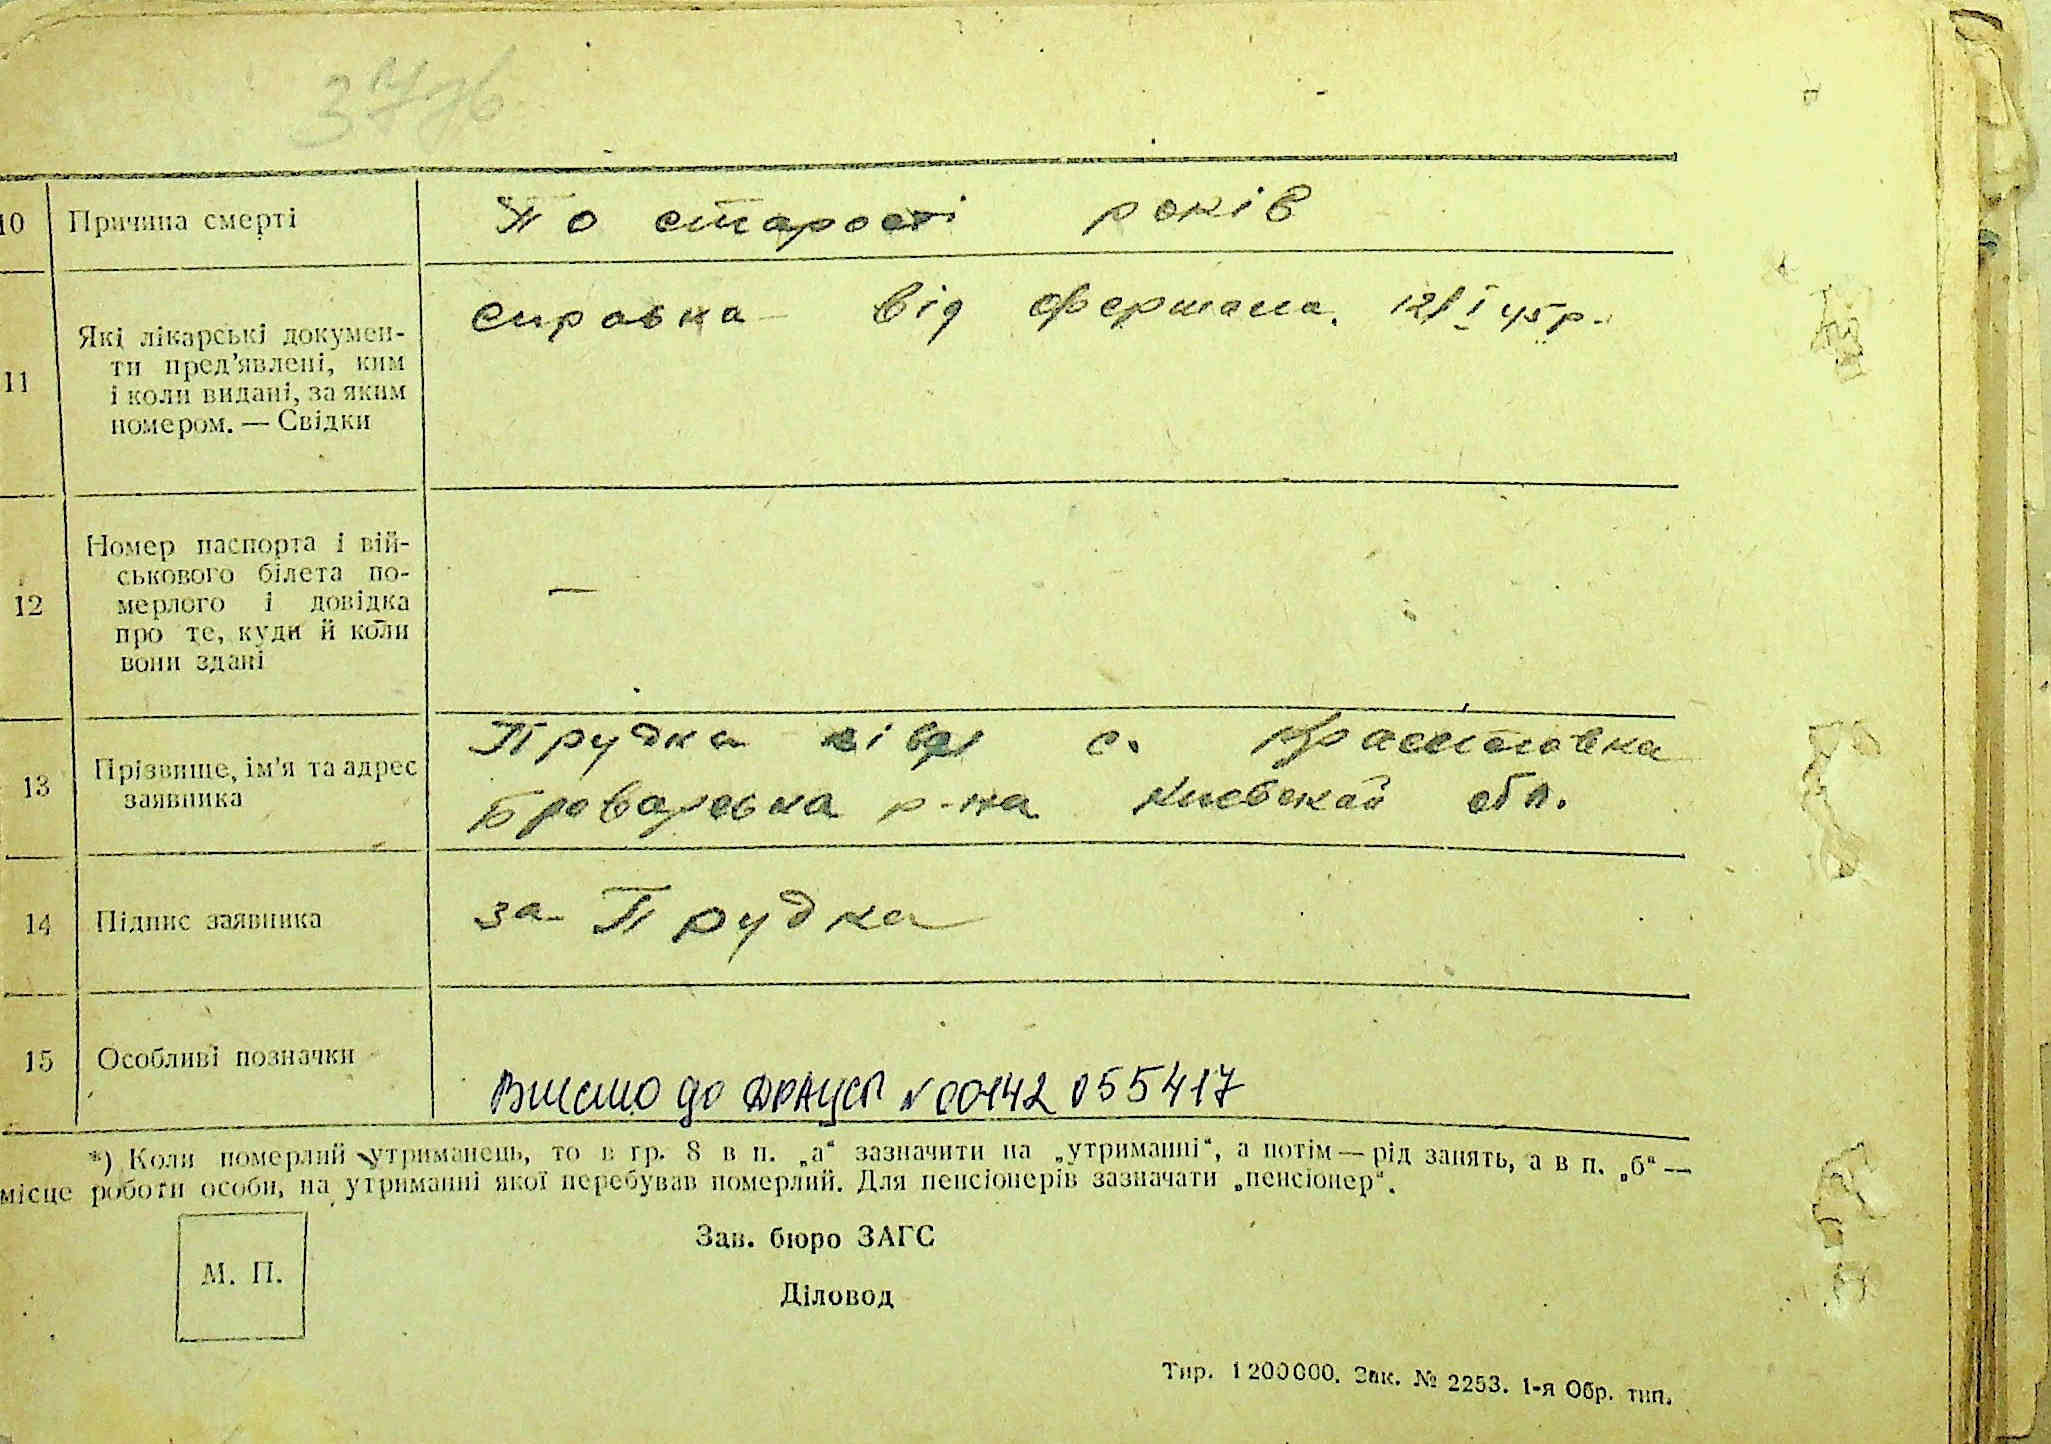 10 Причина смерті По старості років
11 Які лікарські докумен-
ти пред'явлені, ким
і коли видані, за яким
номером. — Свідки
справка від фершала. 12/I 45 р.
12 Номер паспорта і вій-
ськового білета по-
мерлого і довідка
про те, куди й коли
вони здані
—
13 Прізвище, ім'я та адрес
заявника
Прудка с.
Броварська р-на Киевской обл.
14 Підпис заявника за Прудка
15 Особливі позначки
Внесено до ДРАЦСГ N 00142055417
*) Коли померлий утриманець, то в гр. 8 в п. „а“ зазначити на „утриманні“, а потім — рід занять, а в п. „б“ —
місце роботи особи, на утриманні якої перебував померлий. Для пенсіонерів зазначати „пенсіонер“.
Зав. бюро ЗАГС
М. П.
Діловод
Тир. 1200000. Зак. № 2253. 1-я Обр. тип.